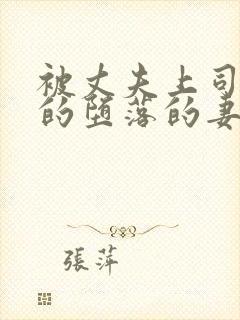 被丈夫上司
的堕落的妻
張萍